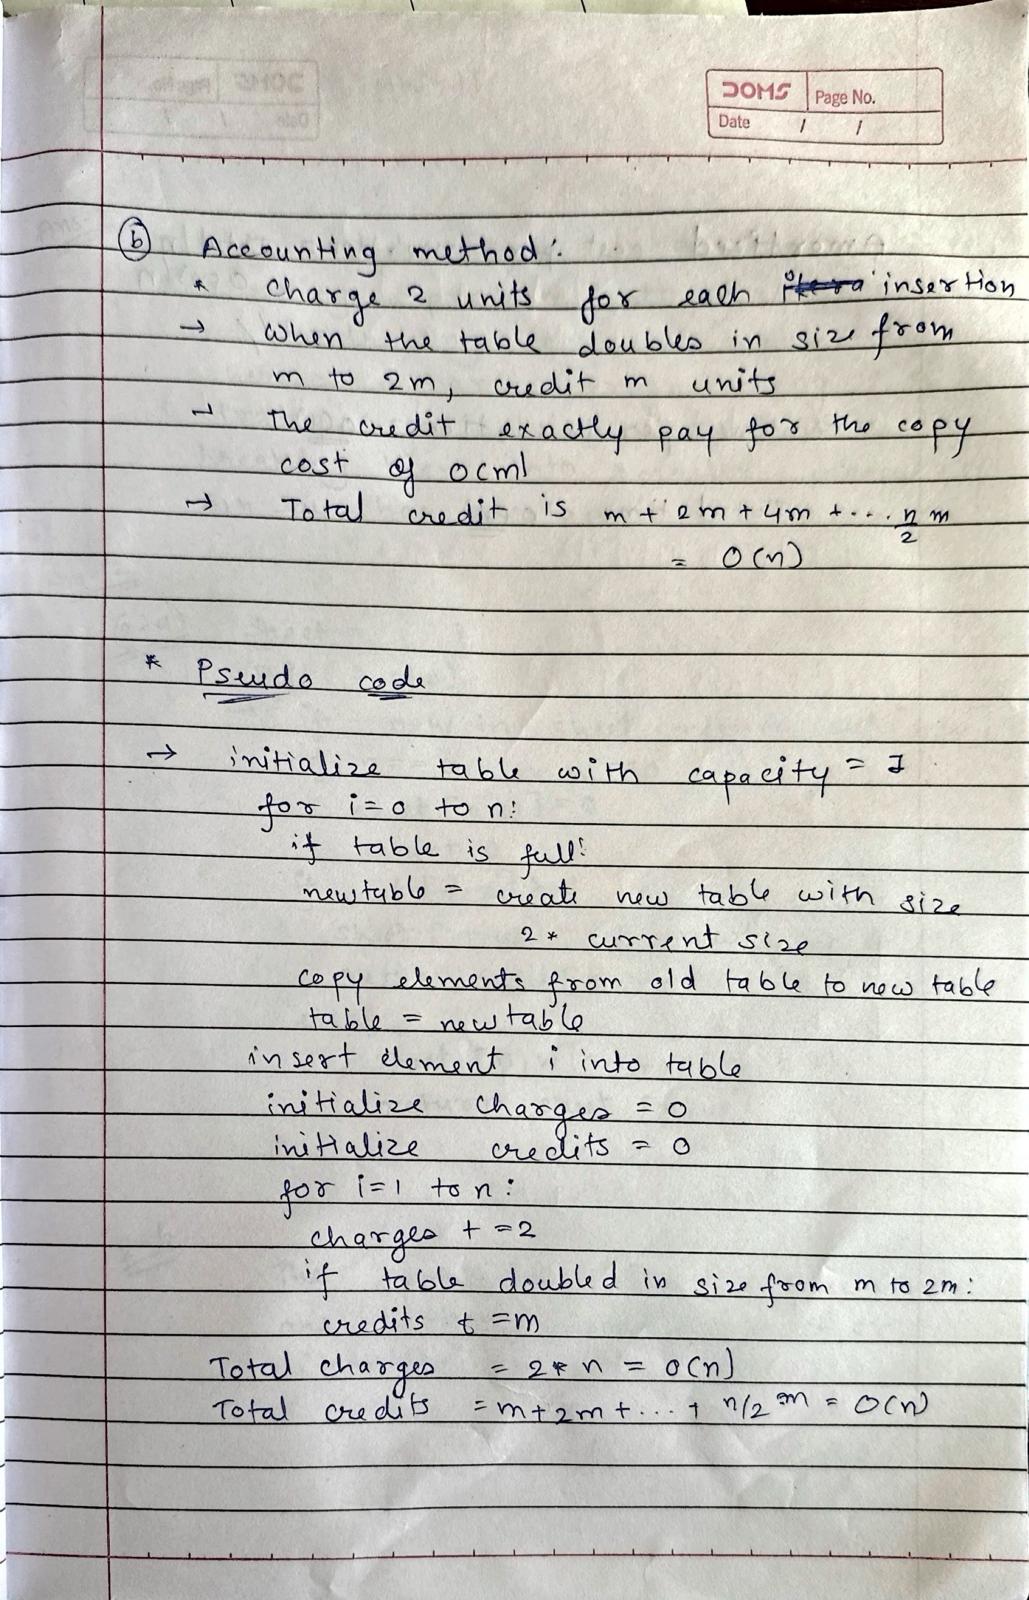 DOMS Page No.
Date / /
(b) Accounting method:
* charge 2 units for each insertion
→ when the table doubles in size from
m to 2m, credit m units
→ The credit exactly pay for the copy
cost of O(m)
→ Total credit is m + 2m + 4m + ... n/2 m
= O(n)
* Pseudo code
→ initialize table with capacity = 1
for i=0 to n:
if table is full:
newtable = create new table with size
2 * current size
copy elements from old table to new table
table = newtable
insert element i into table
initialize charges = 0
initialize credits = 0
for i=1 to n:
charges + =2
if table doubled in size from m to 2m:
credits + =m
Total charges = 2 * n = O(n)
Total credits = m+2m+...+ n/2 m = O(n)